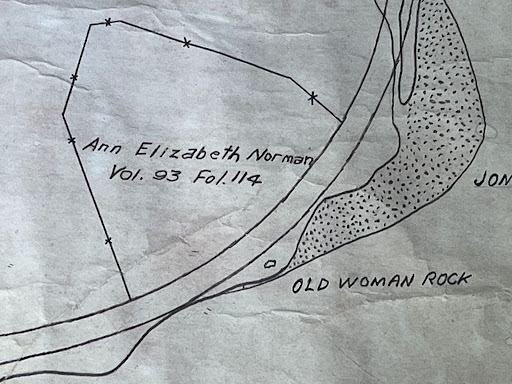 Ann Elizabeth Norman
Vol. 93 Fol. 114
JON
OLD WOMAN ROCK